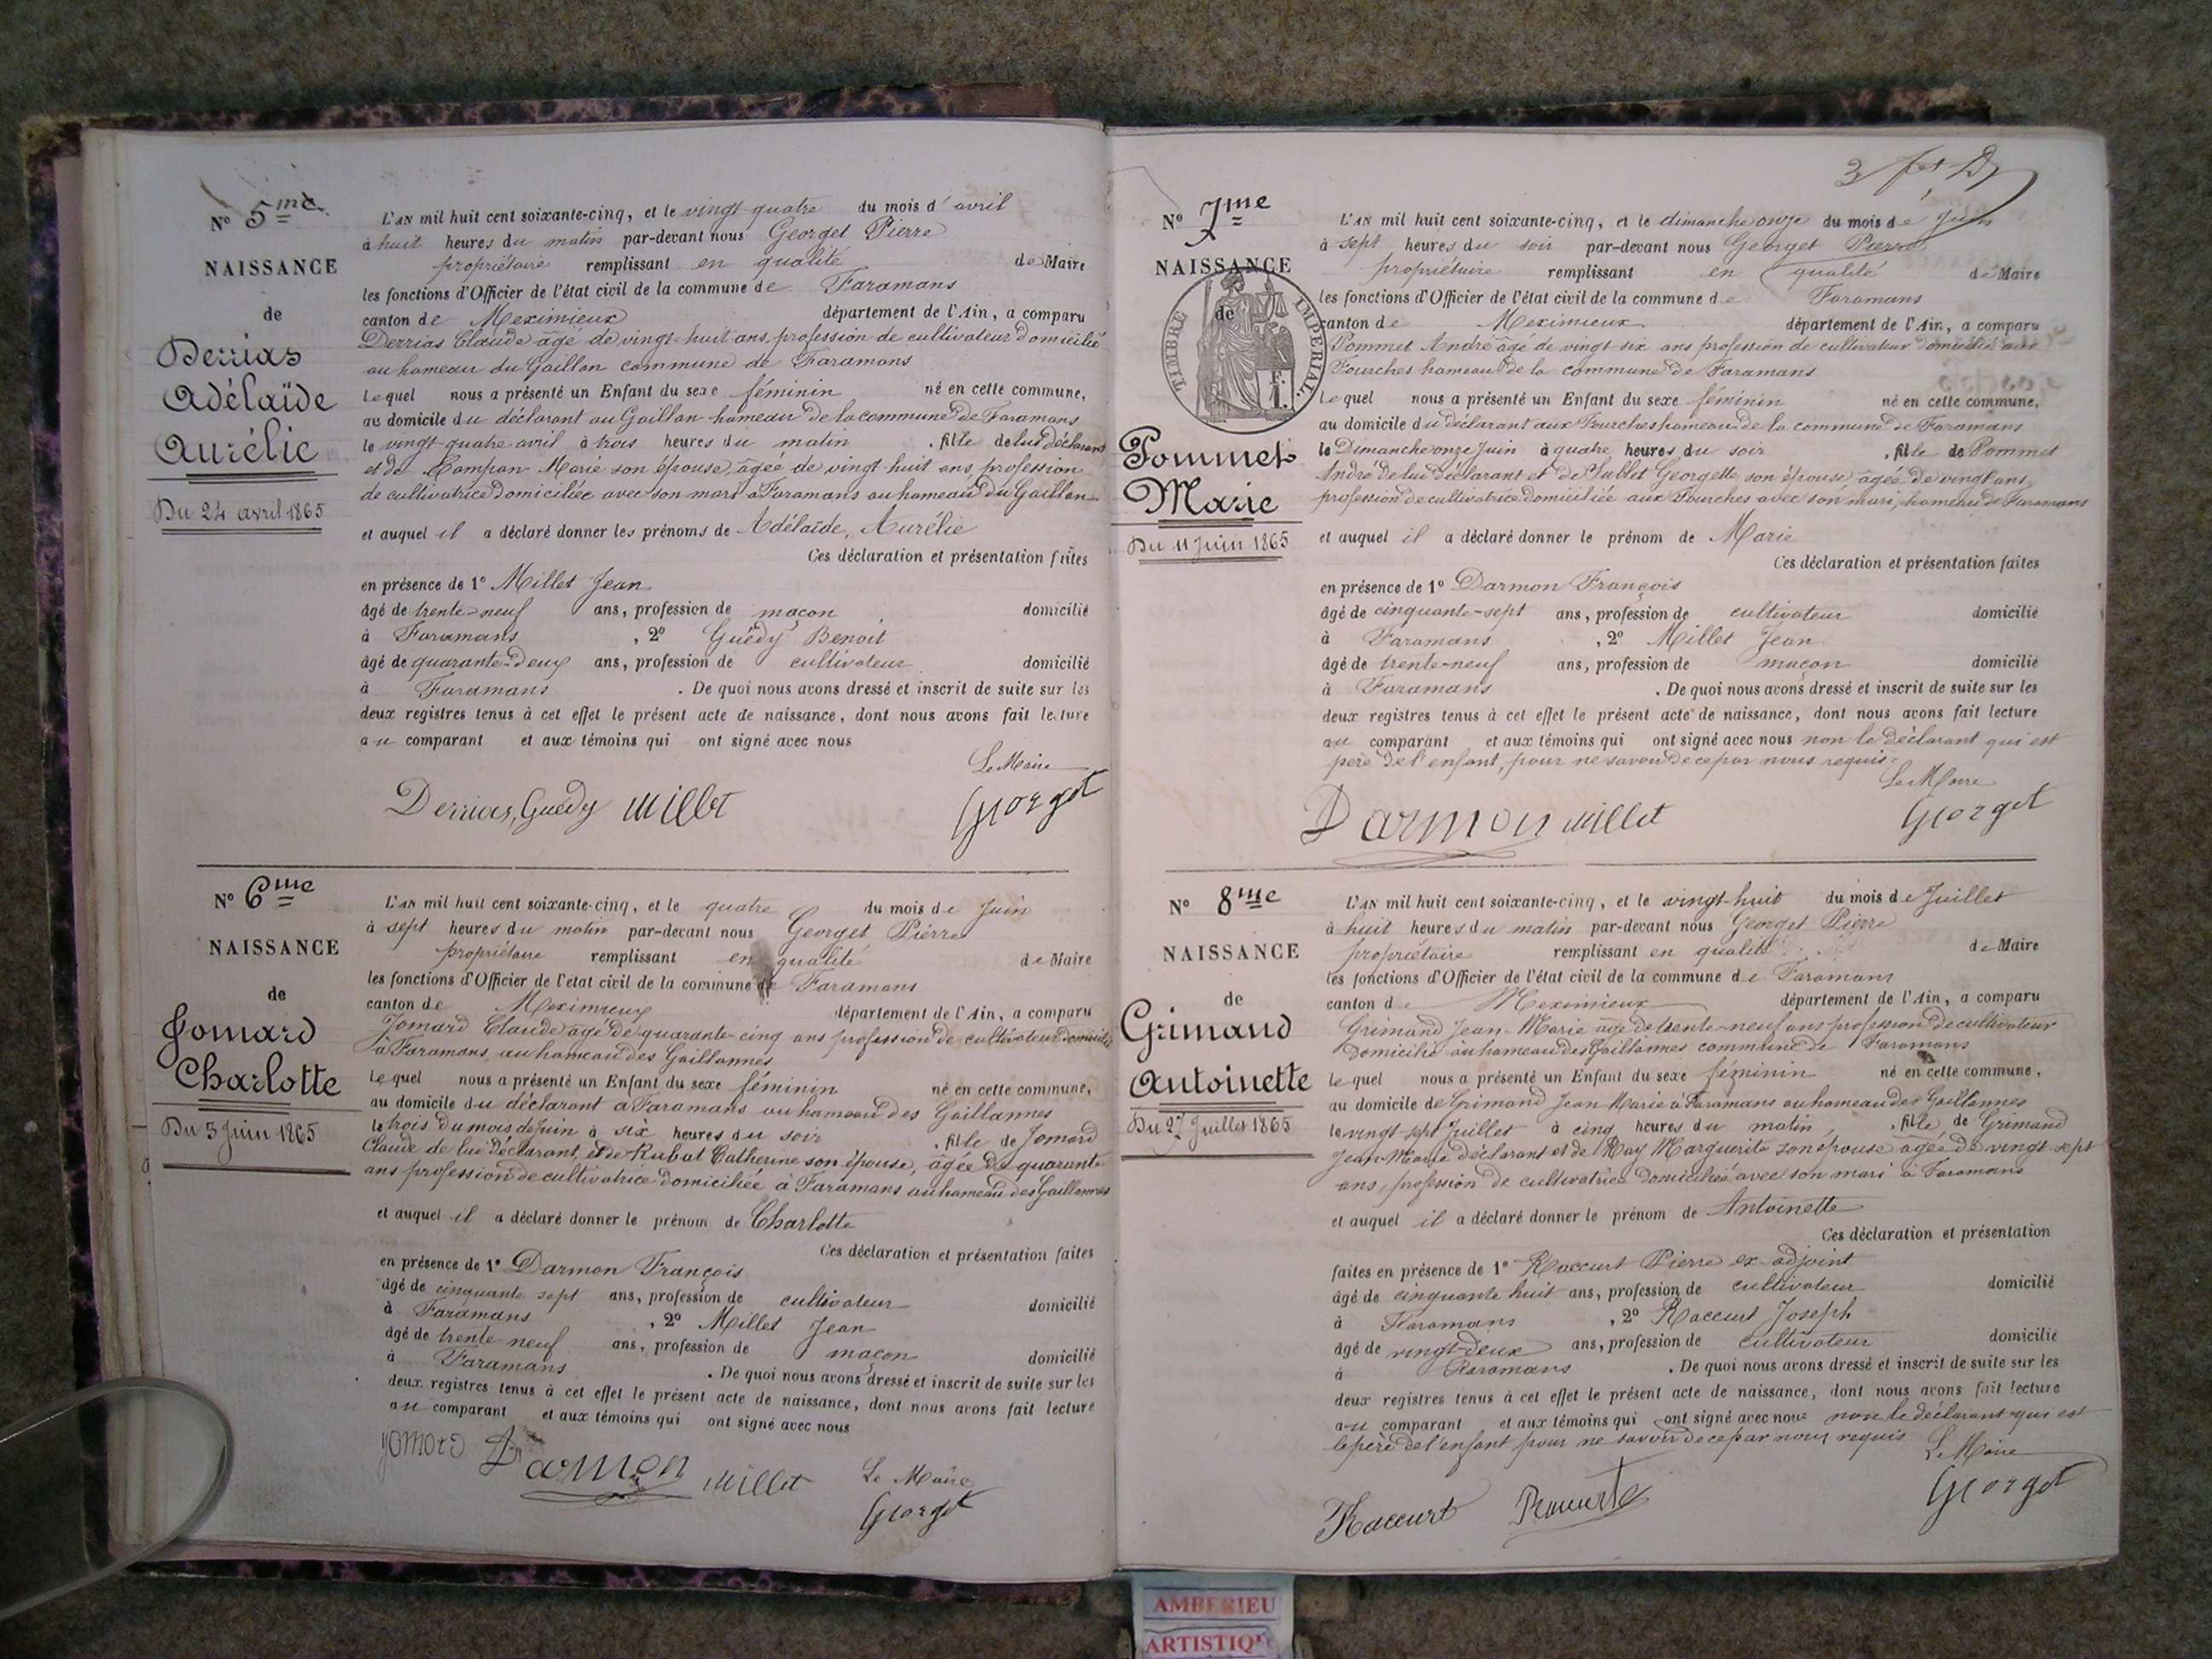 Nº 5me
NAISSANCE
de
Derrias
Adélaïde
Aurélie
Du 24 avril 1865
L'AN mil huit cent soixante-cinq, et le vingt quatre du mois d'avril
à huit heures du matin par-devant nous Georget Pierre
propriétaire remplissant en qualité de Maire
les fonctions d'Officier de l'état civil de la commune de Faramans
canton de Meximieux département de l'Ain, a comparu
Derrias Claude âgé de vingt-huit ans, profession de cultivateur domicilié
au hameau du Gaillan commune de Faramans
Lequel nous a présenté un Enfant du sexe féminin né en cette commune,
au domicile du déclarant au Gaillan hameau de la commune de Faramans
le vingt quatre avril à trois heures du matin, fille de lui déclarant
et de Compan Marie son épouse, âgée de vingt huit ans, profession
de cultivatrice domiciliée avec son mari à Faramans au hameau du Gaillan
et auquel il a déclaré donner les prénoms de Adélaïde, Aurélie
Ces déclaration et présentation faites
en présence de 1º Millet Jean
âgé de trente-neuf ans, profession de maçon domicilié
à Faramans, 2º Guédy Benoit
âgé de quarante-deux ans, profession de cultivateur domicilié
à Faramans. De quoi nous avons dressé et inscrit de suite sur les
deux registres tenus à cet effet le présent acte de naissance, dont nous avons fait lecture
au comparant et aux témoins qui ont signé avec nous
Le Maire
Derrias, Guédy Millet Georget
Nº 6me
NAISSANCE
de
Jomard
Charlotte
Du 3 Juin 1865
L'AN mil huit cent soixante-cinq, et le quatre du mois de Juin
à sept heures du matin par-devant nous Georget Pierre
propriétaire remplissant en qualité de Maire
les fonctions d'Officier de l'état civil de la commune de Faramans
canton de Meximieux département de l'Ain, a comparu
Jomard Claude âgé de quarante-cinq ans profession de cultivateur domicilié
à Faramans, au hameau des Gaillannes
Lequel nous a présenté un Enfant du sexe féminin né en cette commune,
au domicile du déclarant à Faramans au hameau des Gaillannes
le trois du mois de Juin à six heures du soir, fille de Jomard
Claude de lui déclarant, et de Rubat Catherine son épouse, âgée de quarante
ans profession de cultivatrice domiciliée à Faramans au hameau des Gaillannes
et auquel il a déclaré donner le prénom de Charlotte
Ces déclaration et présentation faites
en présence de 1º Darmon François
âgé de cinquante sept ans, profession de cultivateur domicilié
à Faramans, 2º Millet Jean
âgé de trente neuf ans, profession de maçon domicilié
à Faramans. De quoi nous avons dressé et inscrit de suite sur les
deux registres tenus à cet effet le présent acte de naissance, dont nous avons fait lecture
au comparant et aux témoins qui ont signé avec nous
Jomard Darmon Millet Le Maire
Georget
Nº 7me
NAISSANCE
de
TIMBRE IMPERIAL
1 F.
Pommet
Marie
Du 11 Juin 1865
L'AN mil huit cent soixante-cinq, et le dimanche onze du mois de Juin
à sept heures du soir par-devant nous Georget Pierre
propriétaire remplissant en qualité de Maire
les fonctions d'Officier de l'état civil de la commune de Faramans
canton de Meximieux département de l'Ain, a comparu
Pommet André âgé de vingt six ans profession de cultivateur domicilié aux
Fourches hameau de la commune de Faramans
Lequel nous a présenté un Enfant du sexe féminin né en cette commune,
au domicile du déclarant aux Fourches hameau de la commune de Faramans
le Dimanche onze Juin à quatre heures du soir, fille de Pommet
André de lui déclarant et de Sublet Georgette son épouse, âgée de vingt ans,
profession de cultivatrice domiciliée aux Fourches avec son mari, hameau de Faramans
et auquel il a déclaré donner le prénom de Marie
Ces déclaration et présentation faites
en présence de 1º Darmon François
âgé de cinquante-sept ans, profession de cultivateur domicilié
à Faramans, 2º Millet Jean
âgé de trente-neuf ans, profession de maçon domicilié
à Faramans. De quoi nous avons dressé et inscrit de suite sur les
deux registres tenus à cet effet le présent acte de naissance, dont nous avons fait lecture
au comparant et aux témoins qui ont signé avec nous non le déclarant qui est
père de l'enfant, pour ne savoir de ce par nous requis.
Le Maire
Darmon Millet Georget
Nº 8me
NAISSANCE
de
Grimand
Antoinette
Du 27 Juillet 1865
L'AN mil huit cent soixante-cinq, et le vingt-huit du mois de Juillet
à huit heures du matin par-devant nous Georget Pierre
propriétaire remplissant en qualité de Maire
les fonctions d'Officier de l'état civil de la commune de Faramans
canton de Meximieux département de l'Ain, a comparu
Grimand Jean-Marie âgé de trente-neuf ans profession de cultivateur
domicilié au hameau des Gaillannes commune de Faramans
Lequel nous a présenté un Enfant du sexe féminin né en cette commune,
au domicile de Grimand Jean Marie à Faramans au hameau des Gaillannes
le vingt-sept Juillet à cinq heures du matin, fille de Grimand
Jean-Marie déclarant et de Ray Marguerite son épouse âgée de vingt-sept
ans, profession de cultivatrice domiciliée avec son mari à Faramans
et auquel il a déclaré donner le prénom de Antoinette
Ces déclaration et présentation
faites en présence de 1º Raccurt Pierre ex-adjoint
âgé de cinquante huit ans, profession de cultivateur domicilié
à Faramans, 2º Raccurt Joseph
âgé de vingt-deux ans, profession de cultivateur domicilié
à Faramans. De quoi nous avons dressé et inscrit de suite sur les
deux registres tenus à cet effet le présent acte de naissance, dont nous avons fait lecture
au comparant et aux témoins qui ont signé avec nous non le déclarant qui est
le père de l'enfant pour ne savoir de ce par nous requis
Le Maire
Raccurt Raccurt Georget
AMBERIEU
ARTISTIQUE